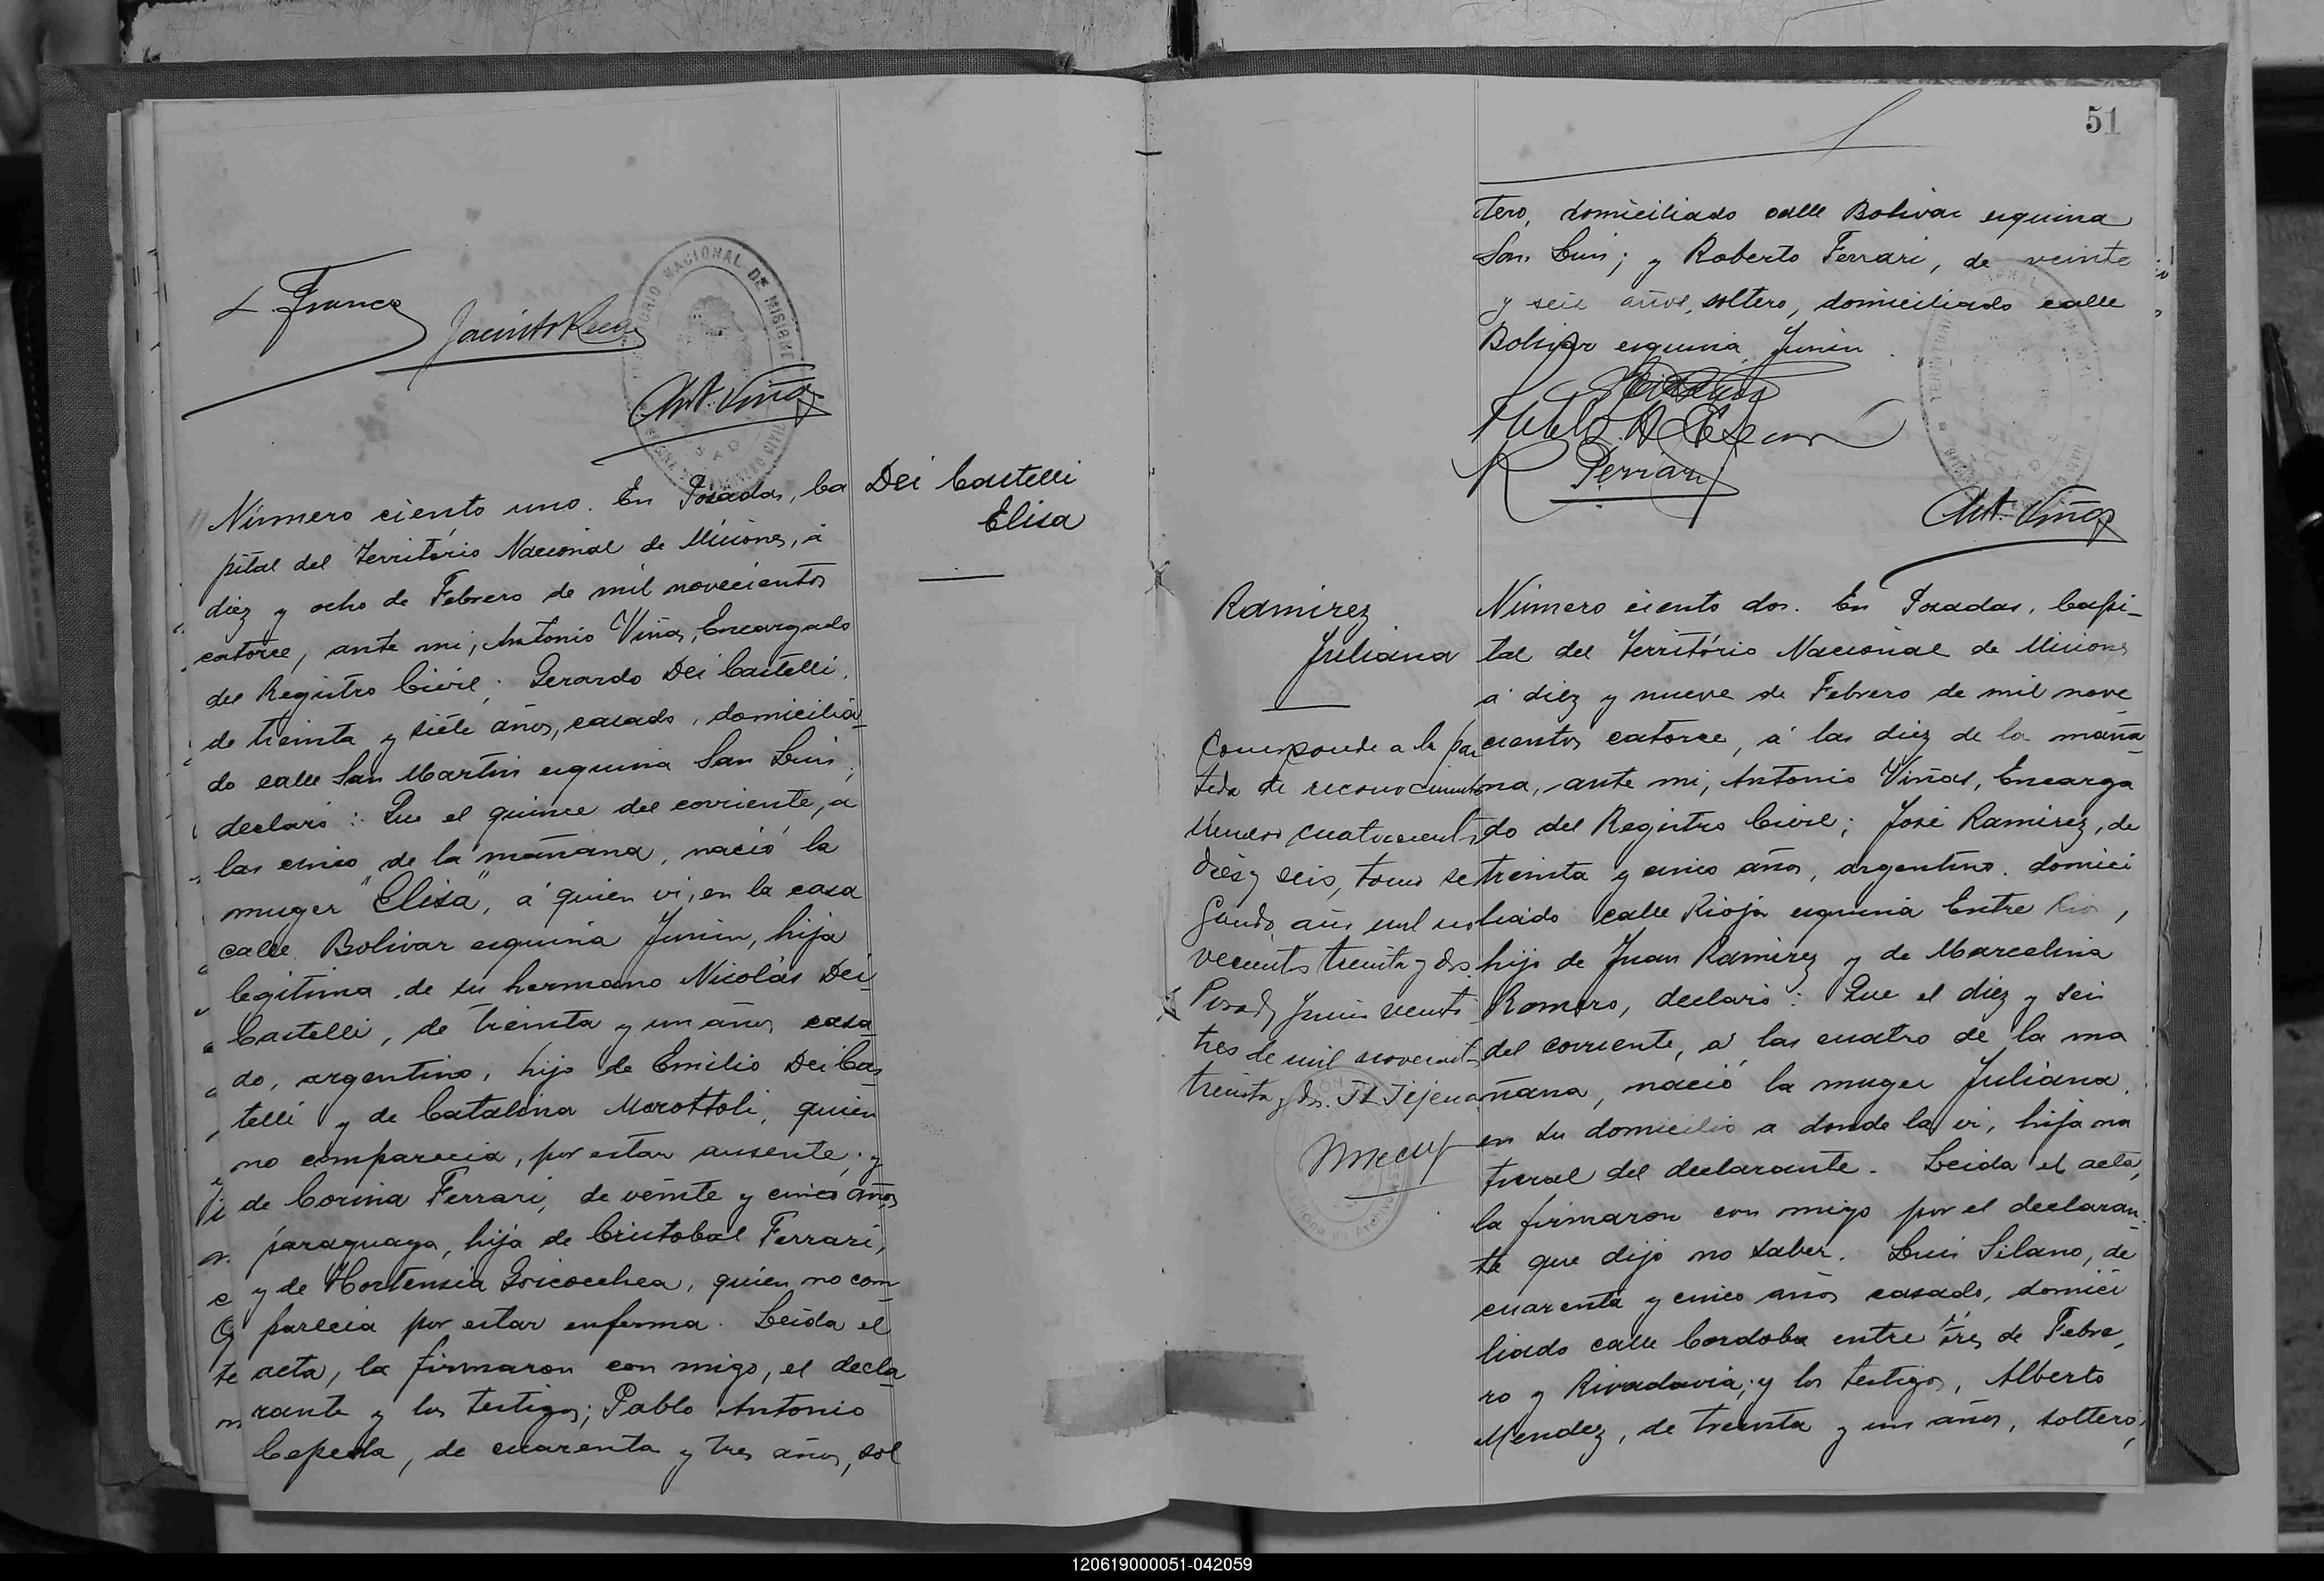 L. Franco
Jacinto
Ant. Viñas
Número ciento uno. En Posadas, Ca
pital del Território Nacional de Misiones, á
diez y ocho de Febrero de mil novecientos
catorce, ante mi, Antonio Viñas, Encargado
del Registro Civil; Gerardo Dei Castelli,
de treinta y siete años, casado, domicilia
do calle San Martin esquina San Luis;
declaró: Que el quince del corriente, a
las cinco de la mañana, nació la
muger "Elisa", á quien vi, en la casa
calle Bolivar esquina Junin, hija
legitima de su hermano Nicolás Dei
Castelli, de treinta y un años, casa
do, argentino, hijo de Emilio Dei Cas
telli y de Catalina Morottoli, quien
no comparecia, por estar ausente; y
de Corina Ferrari, de veinte y cinco años
paraguaya, hija de Cristobal Ferrari,
y de Hortensia Goicocehea, quien no com
parecia por estar enferma. Leida el
acta, la firmaron con migo, el decla
rante y los testigos; Pablo Antonio
Cepeda, de cuarenta y tres años, sol
Dei Castelli
Elisa
51
tero, domiciliado calle Bolivar esquina
San Luis; y Roberto Ferrari, de veinte
y seis años, soltero, domiciliado calle
Bolivar esquina Junin
Pablo A
R Ferrari
Ant. Viñas
Ramirez
Juliana
Corresponde a la par
tida de reconocimiento
número cuatrocientos
diés y seis, tomo se
gundo, año mil no
vecientos treinta y dos.
Posadas Junio veinti
tres de mil novecientos
treinta y dos.
Número ciento dos. En Posadas, Capi_
tal del Território Nacional de Misiones
á diez y nueve de Febrero de mil nove
cientos catorce, á las diez de la maña
na, ante mi, Antonio Viñas, Encarga
do del Registro Civil; José Ramirez, de
treinta y cinco años, argentino, domici
liado calle Rioja esquina Entre Rios,
hijo de Juan Ramirez y de Marcelina
Romero, declaró: Que el diez y seis
del corriente, a las cuatro de la ma
ñana, nació la muger Juliana,
en su domicilio a donde la vi, hija na
tural del declarante. Leida el acta,
la firmaron con migo por el declaran_
te que dijo no saber. Luis Silano, de
cuarenta y cinco años casado, domici
liado calle Cordoba entre tres de Febre_
ro y Rivadavia; y los testigos, Alberto
Mendez, de treinta y un años, soltero,
120619000051-042059